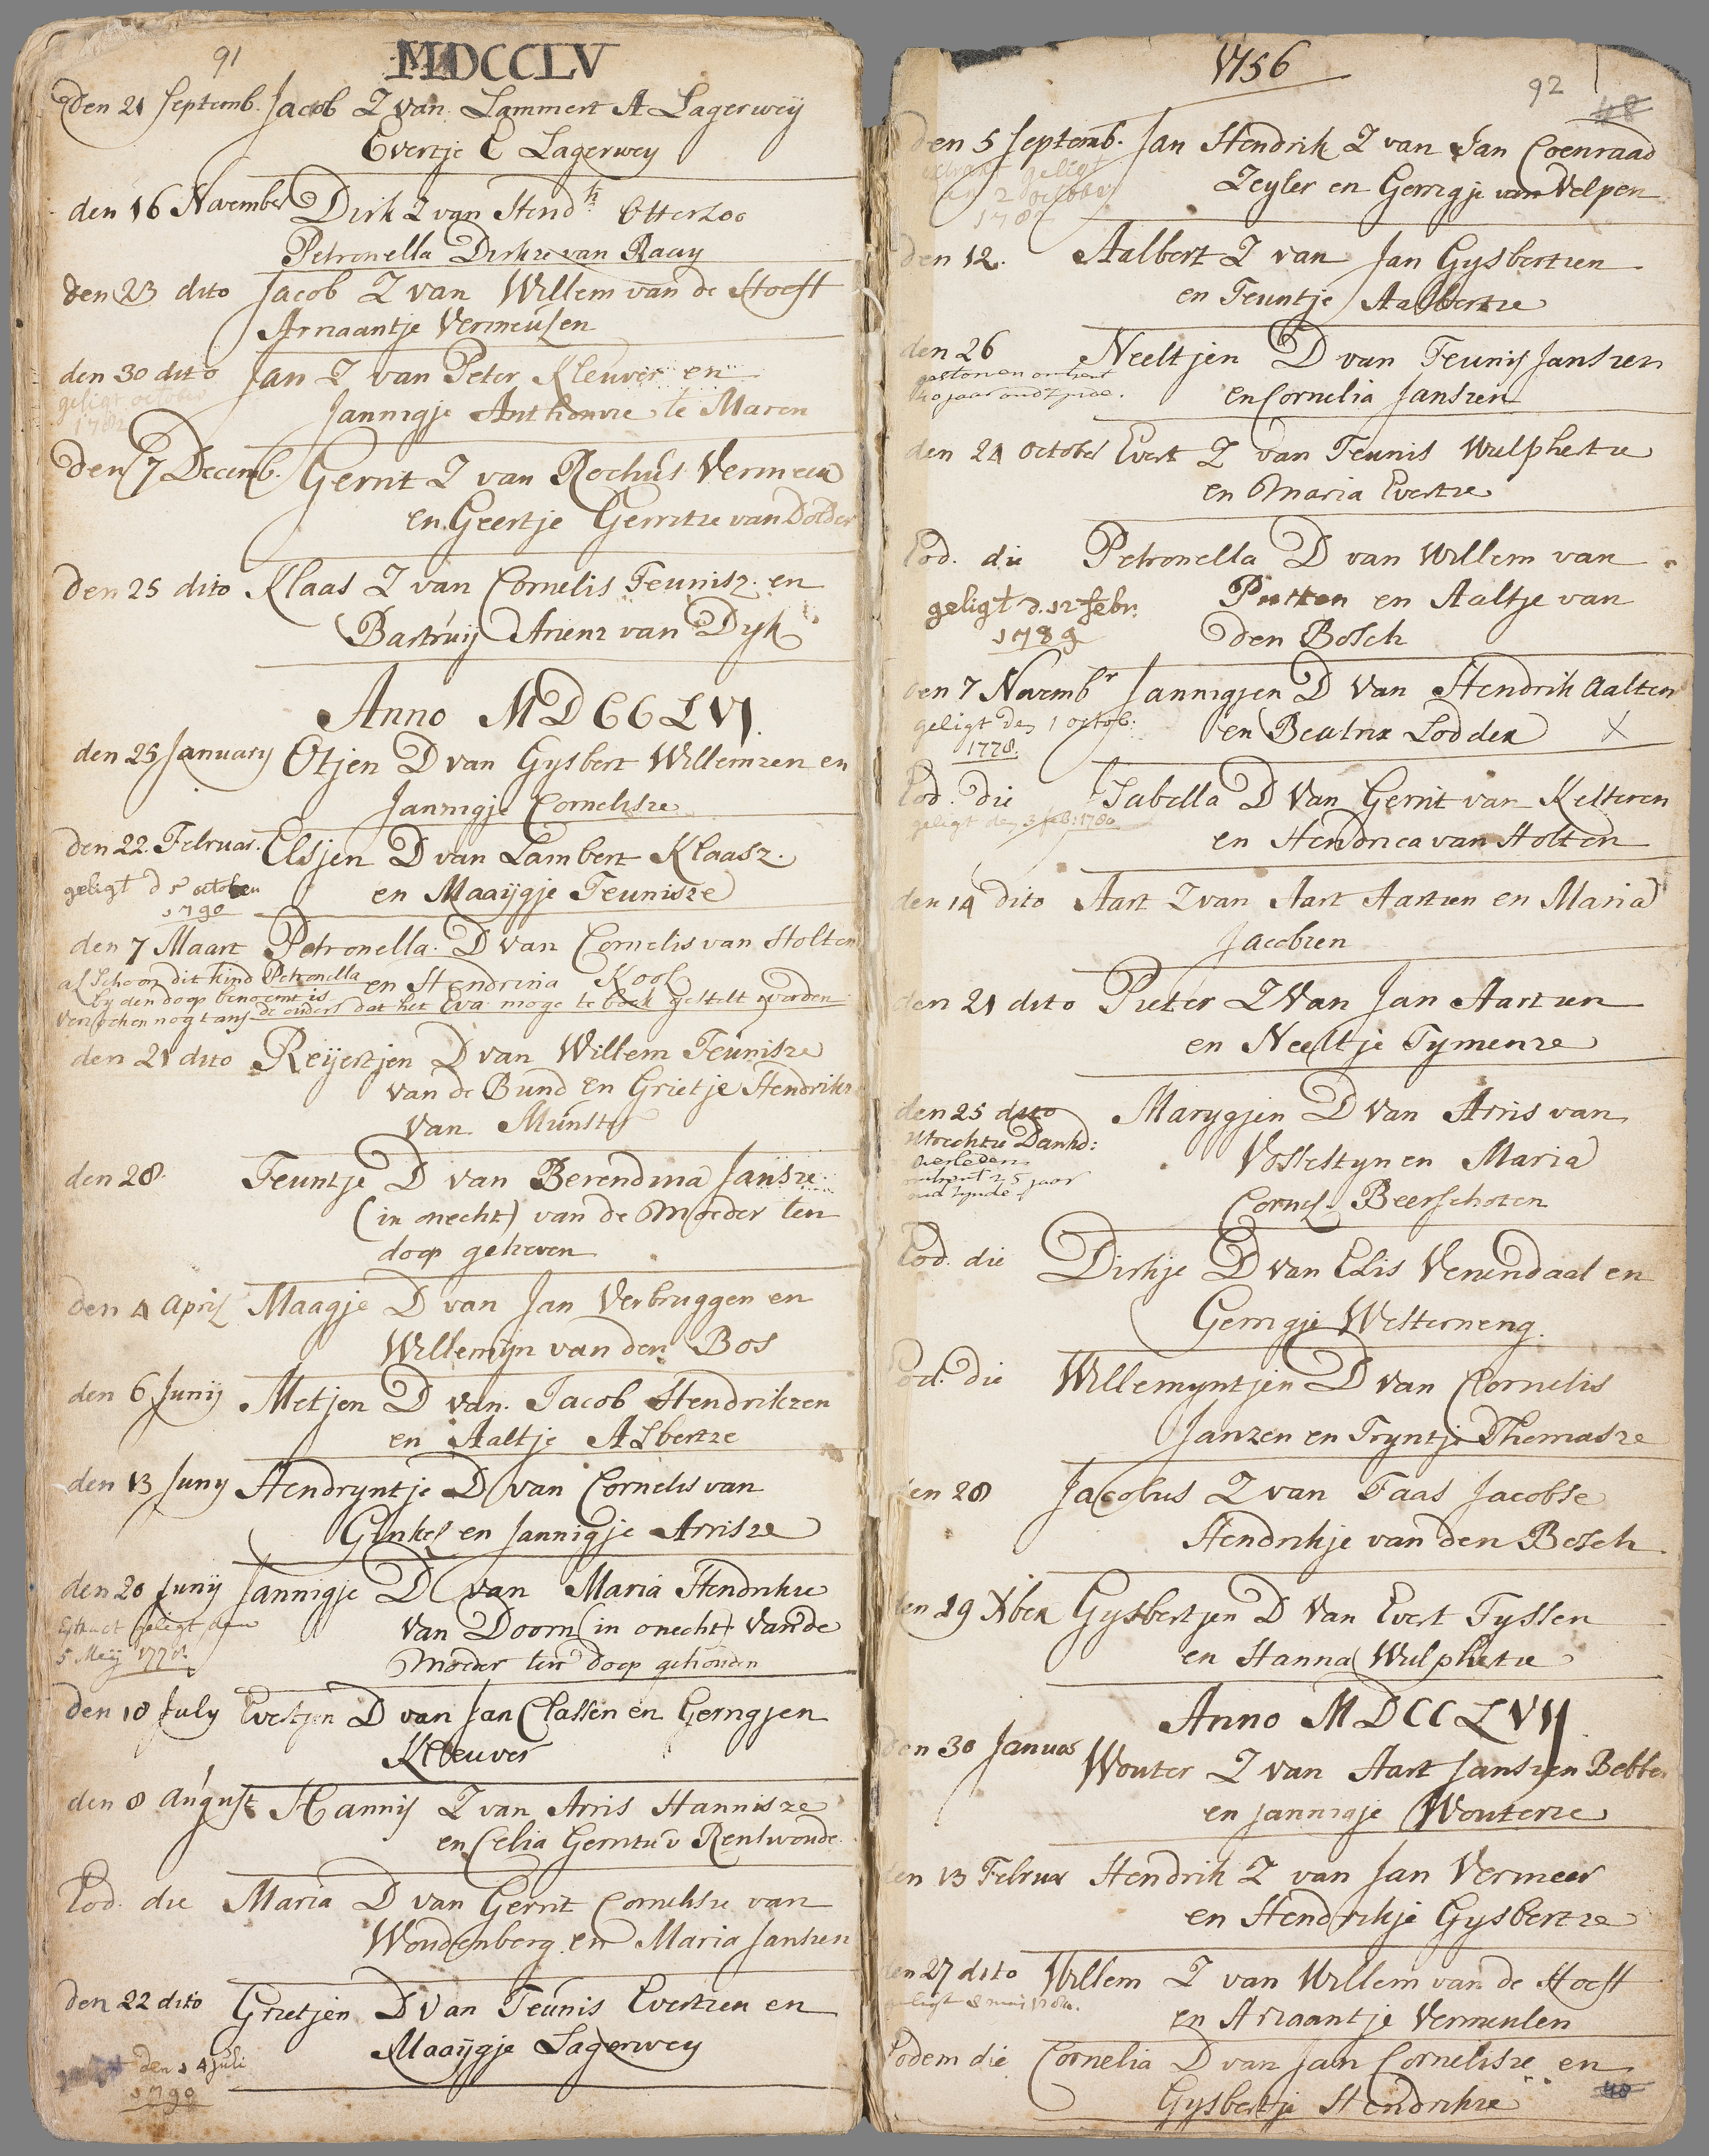 91
MDCCLV
den 21 Septemb. Jacob Z van Lammert A Lagerweÿ
Evertje E Lagerwey
den 16 November Dirk Z van Hendk Otterloo
Petronella Dirkze van Raaij
den 23 dito Jacob Z van Willem van de Hoeft
Arriaantje Vermeulen
den 30 dito Jan Z van Peter Kleuver en
geligt october
1782
Jannigje Anthonize te Maren
den 7 Decemb. Gerrit Z van Rochus Vermeer
en Geertje Gerritze van Dolder
den 25 dito Klaas Z van Cornelis Teunisz. en
Bartruij Arienz van Dyk
Anno MDCCLVI.
den 25 January Otjen D van Gysbert Willemzen en
Jannigje Cornelisze
den 22. Februar. Elsjen D van Lambert Klaasz.
geligt d 5 october
1790
en Maaijgje Teunisze
den 7 Maart Petronella. D van Cornelis van Holten
al schoon dit kind Petronella en Hendrina Kool
by den doop benoemt is
versochen nogtans de ouders dat het Eva moge te boek gestelt worden
den 21 dito Reijertjen D van Willem Teunisze
van de Bund en Grietje Hendrikz
van Munster
den 28. Teuntje D van Berendina Janse
(in onecht) van de Moeder ten
doop geheven
den 4 April Maagje D van Jan Verbruggen en
Willemijn van den Bos
den 6 Junij Metjen D van. Jacob Hendrikzen
en Aaltje Albertze
den 13 Juny Hendryntje D van Cornelis van
Ginkel en Jannigje Arrisze
den 20 Junij Jannigje D van Maria Hendrikze
Extract geligt den
5 Meij 1778.
van Doorn (in onecht) van de
Moeder ten doop gehouden
den 18 July Evertjen D van Jan Classen en Gerrigjen
Kleuver
den 8 August Hannis Z van Arris Hannisze
en Celia Gerritze v Renswoude
Eod. die Maria D van Gerrit Cornelisze van
Woudenberg en Maria Jansen
den 22 dito Grietjen D van Teunis Evertzen en
Maaijgje Lagerwey
geligt den 14 Juli
1790
1756
92
48
den 5 Septemb. Jan Hendrik Z van Jan Coenraad
extract geligt
den 2 october
1782
Zeyler en Gerrigje van Velpen
den 12. Aalbert Z van Jan Gysbertzen
en Teuntje Aalbertze
den 26 Neeltjen D van Teunis Janszen
gestorven omtrent
en Cornelia Janszen
den 24 October Evert Z van Teunis Wulphertze
en Maria Evertze
Eod. die Petronella D van Willem van
geligt d. 12 febr.
1789
Putten en Aaltje van
den Bosch
den 7 Novembr Jannigjen D van Hendrik Aalten
geligt den 1 octob:
1778.
en Beatrix Lodder X
Eod. die Isabella D van Gerrit van Kelteren
geligt den 3 feb: 1780
en Hendrica van Holten
den 14 dito Aart Z van Aart Aartzen en Maria
Jacobzen
den 21 dito Pieter Z van Jan Aartzen
en Neeltje Tymenze
den 25 dito Marygjen D van Arris van
Utrechtze Dankd:
overleden
omtrent 25 jaar
oud zynde
Vosstestyn en Maria
Cornel. Beerschoten
Eod. die Dirkje D van Elis Venendaal en
Gerrigje Westerneng.
Eod. die Willemyntjen D van Cornelis
Janzen en Tryntje Thomasze
den 28 Jacobus Z van Faas Jacobse
Hendrikje van den Bosch
den 19 Xber Gysbertjen D van Evert Tyssen
en Hanna Wulphertze
Anno MDCCLVII
den 30 Januar Wouter Z van Aart Janszen Bebber
en Jannigje Wouterze
den 13 Februar Hendrik Z van Jan Vermeer
en Hendrikje Gysbertze
den 27 dito Willem Z van Willem van de Hoeft
en Arriaantje Vermeulen
Eodem die Cornelia D van Jan Cornelisze en
Gysbertje Hendrikze
48